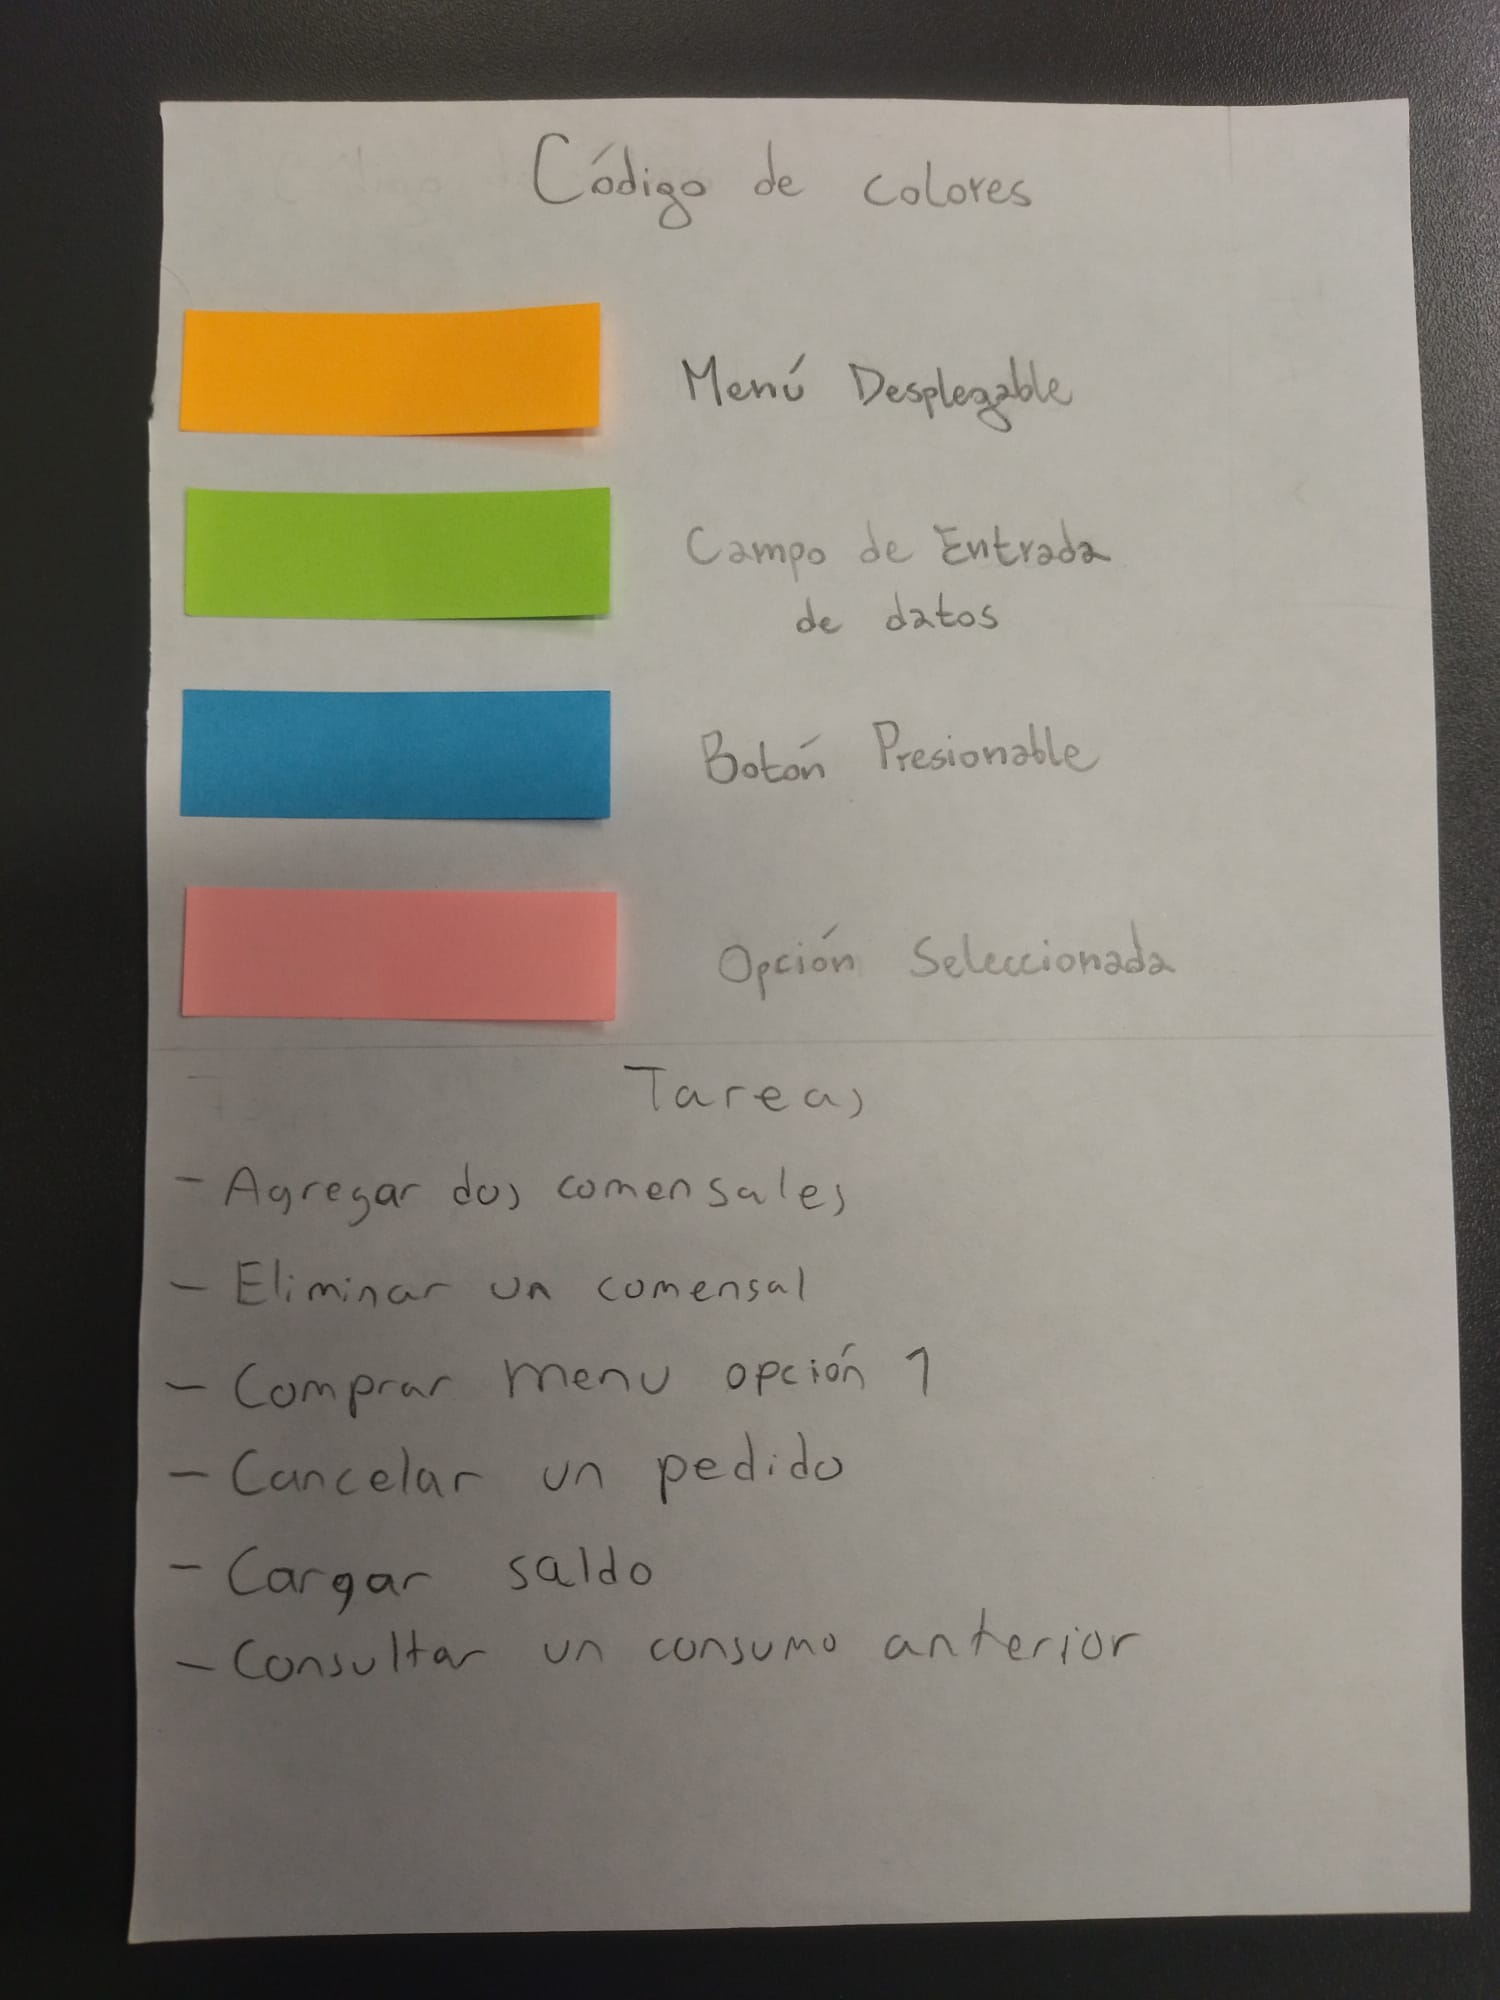 Código de colores
Menú Desplegable
Campo de Entrada
de datos
Botón Presionable
Opción Seleccionada
Tareas
- Agregar dos comensales
- Eliminar un comensal
- Comprar menu opción 1
- Cancelar un pedido
- Cargar saldo
- Consultar un consumo anterior